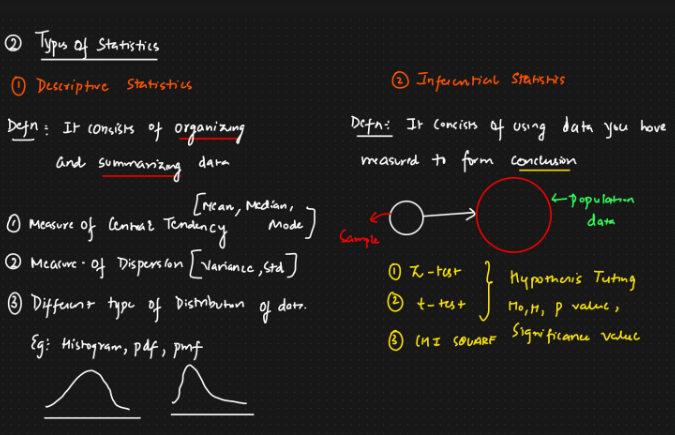 ② Types of Statistics
① Descriptive Statistics
Defn: It consists of organizing
and summarizing data
① Measure of Central Tendency [Mean, Median, Mode]
② Measure of Dispersion [Variance, Std]
③ Different type of Distribution of data.
Eg: Histogram, pdf, pmf
② Inferential Statistics
Defn: It consists of using data you have
measured to form conclusion
Sample
Population
data
① Z-test
② t-test
③ CHI SQUARE
Hypothesis Testing
H0, H1, P value,
Significance value